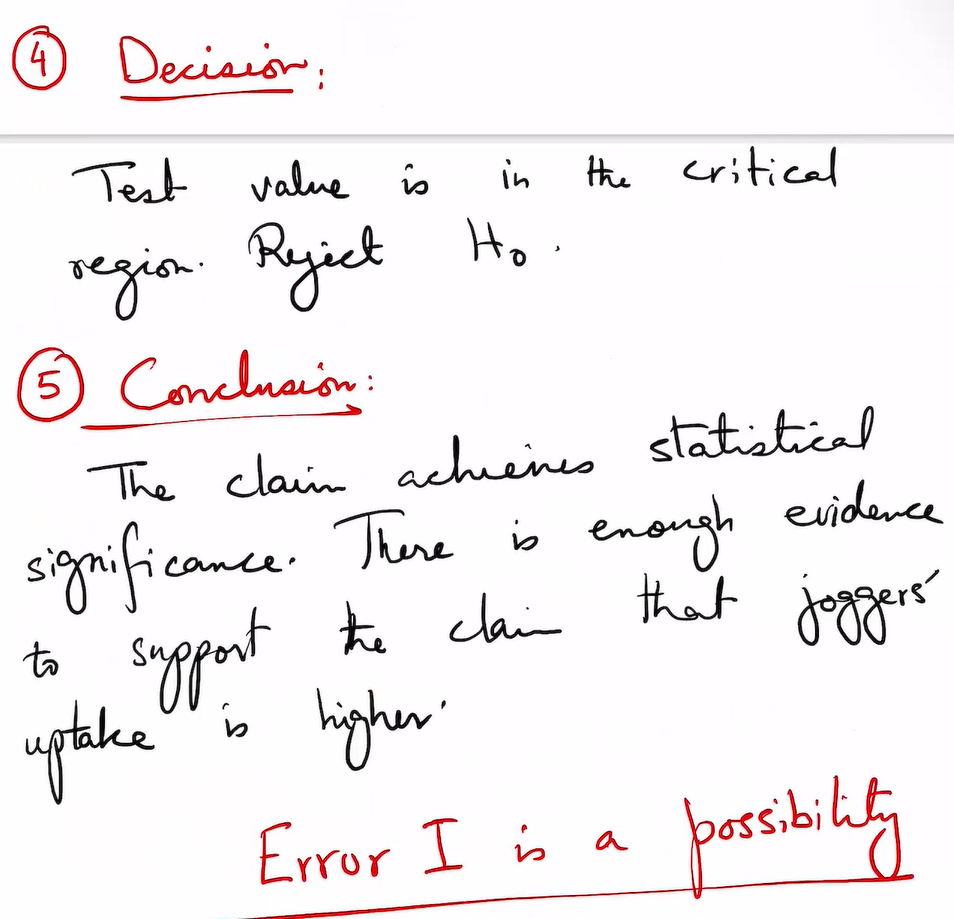 ④ Decision:
Test value is in the critical
region. Reject H₀.
⑤ Conclusion:
The claim achieves statistical
significance. There is enough evidence
to support the claim that joggers'
uptake is higher.
Error I is a possibility